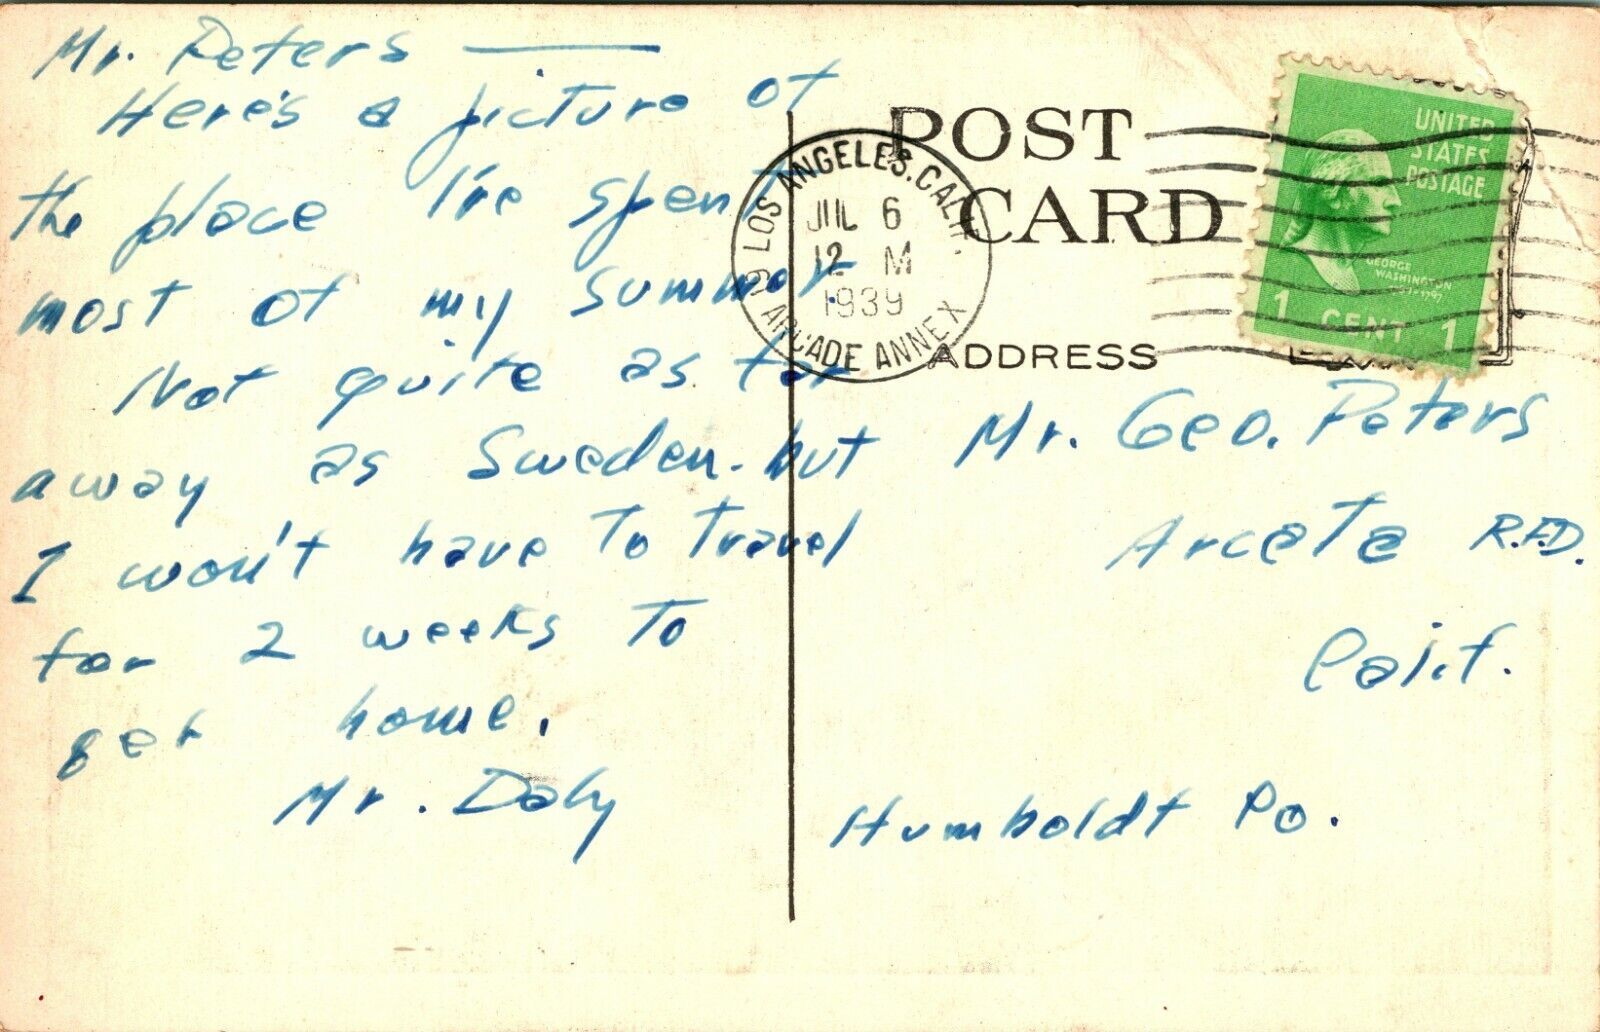 Mr. Peters —
Here's a picture of
the place I've spent
most of my summer.
Not quite as far
away as Sweden. but
I won't have to travel
for 2 weeks to
get home.
Mr. Daly
POST CARD
LOS ANGELES, CALIF.
JUL 6
12 M
1939
19 ARCADE ANNEX
UNITED
STATES
POSTAGE
GEORGE
WASHINGTON
1 CENT 1
ADDRESS
Mr. Geo. Peters
Arcata R.F.D.
Calif.
Humboldt Co.